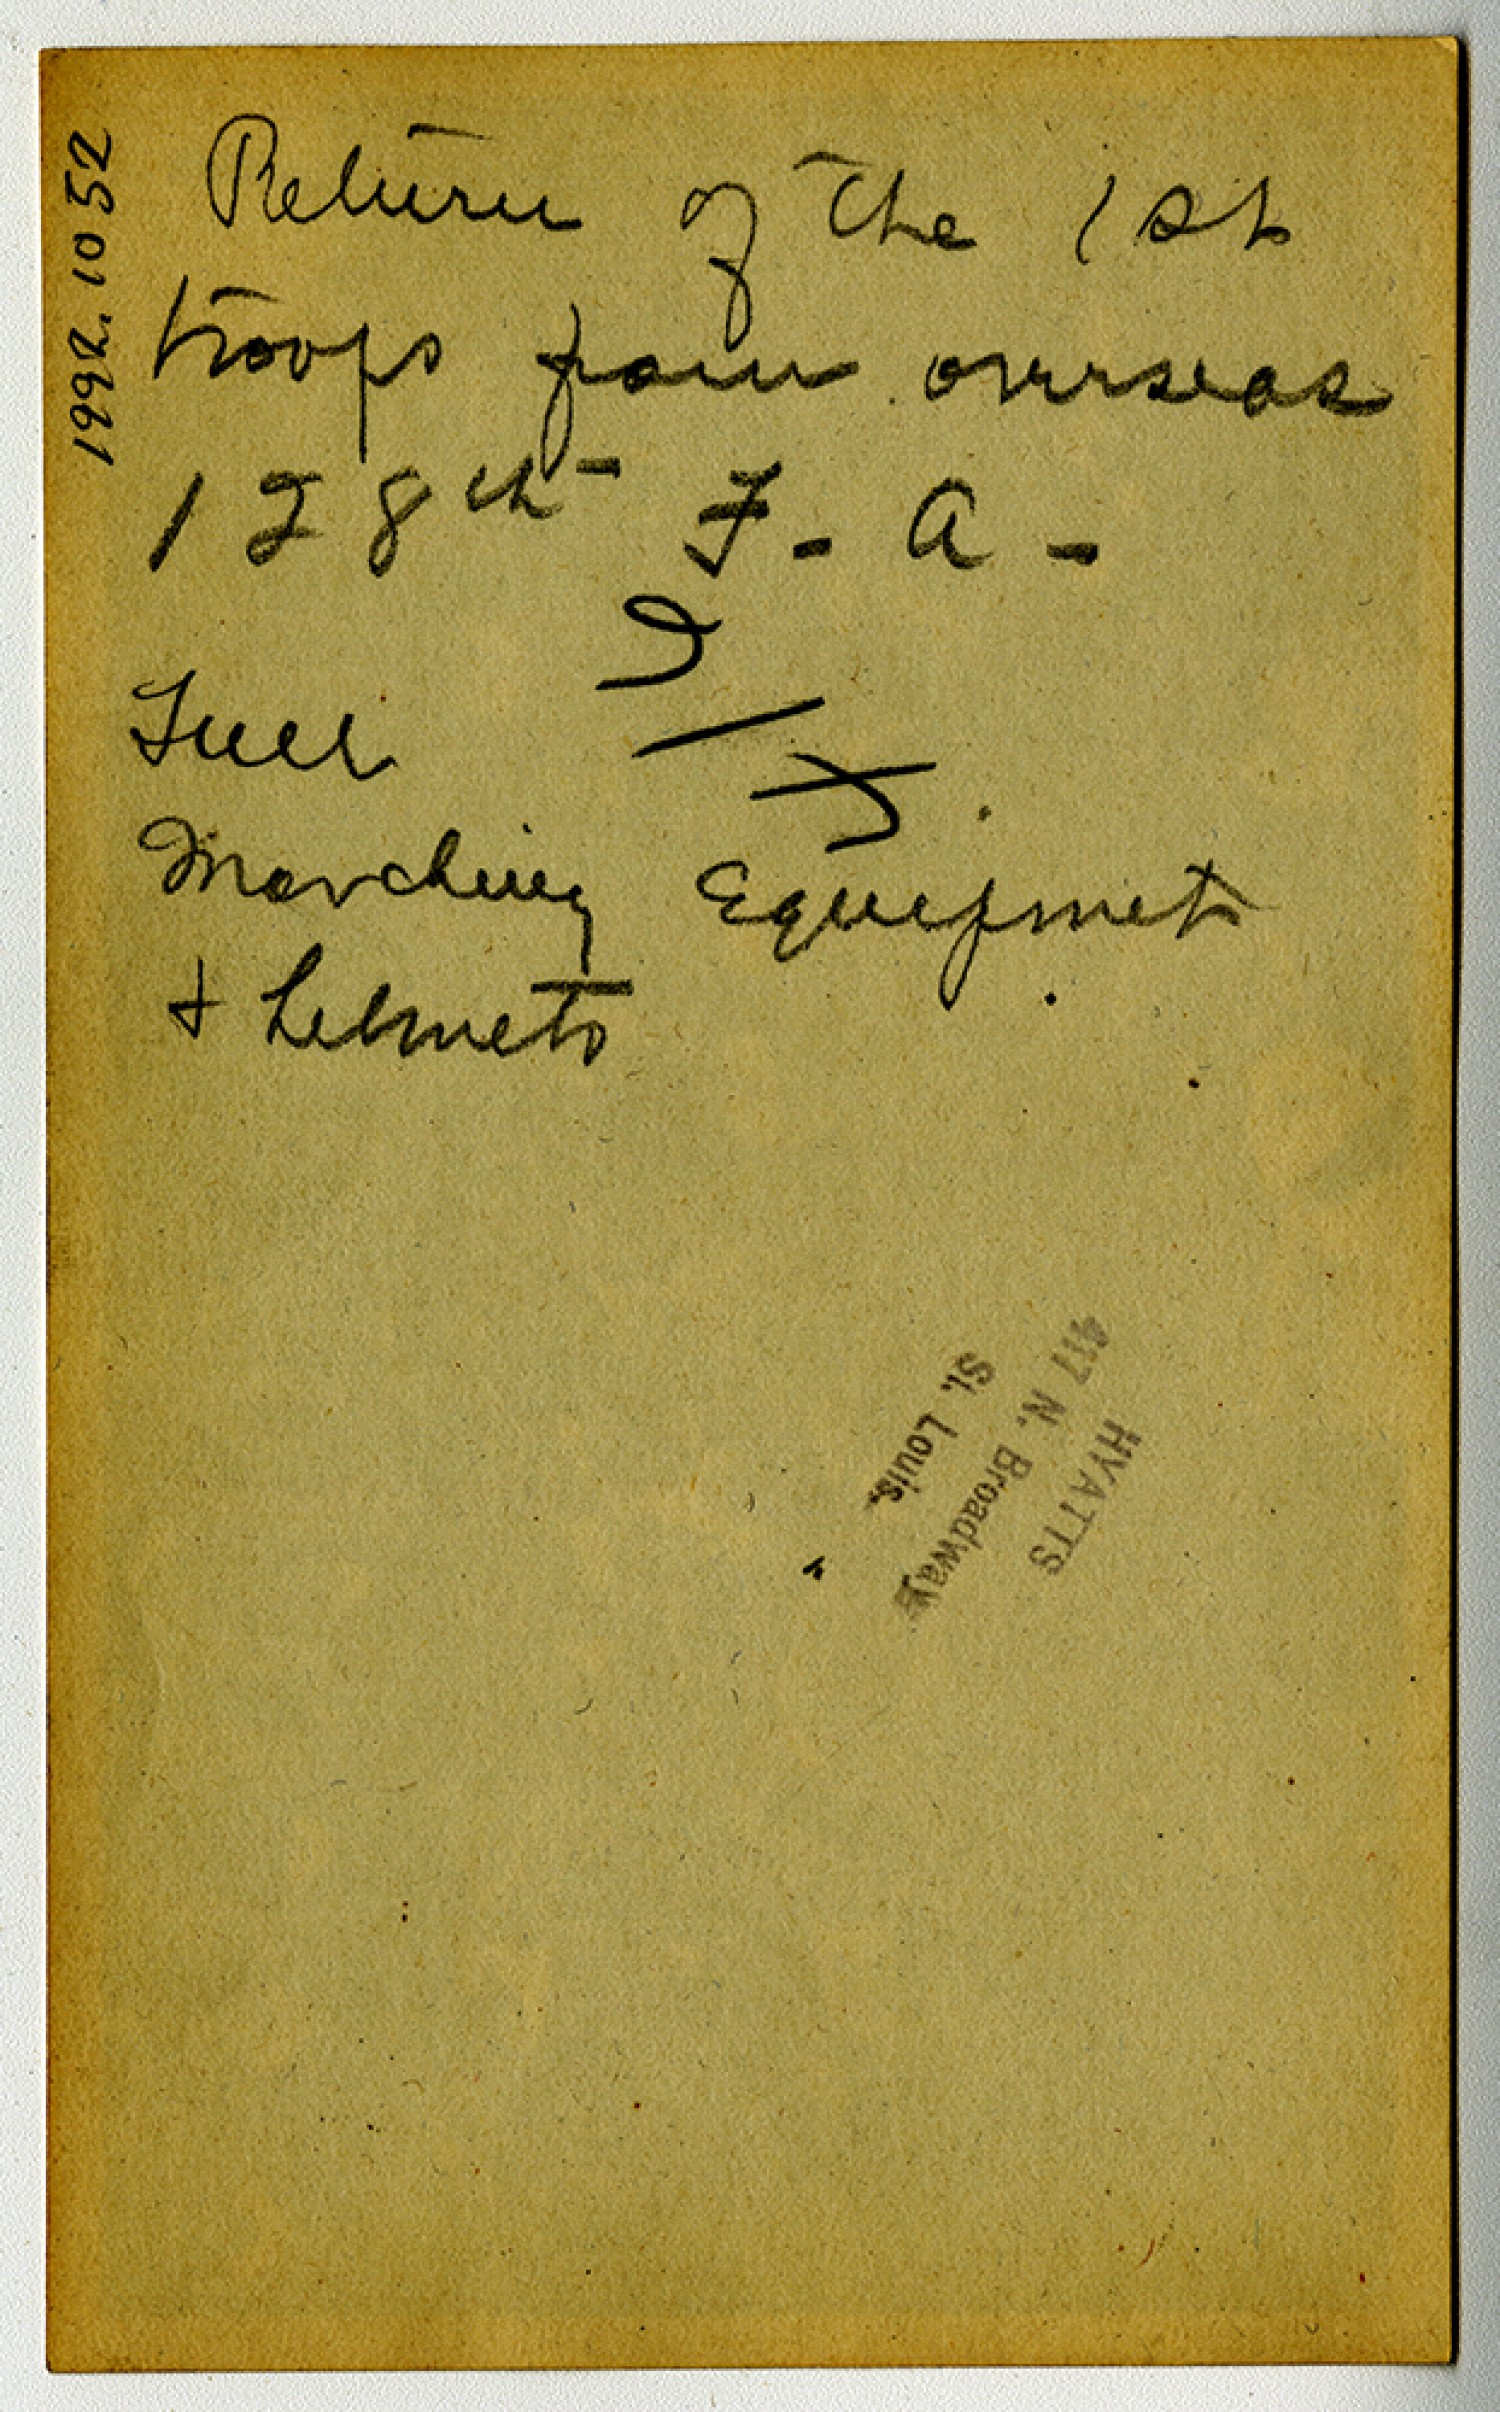 1992.1052
Return of the 1st
troops from overseas
128th - F. A -
Full
Marching Equipmet
& helmets
HYATTS
417 N. Broadway
St. Louis.